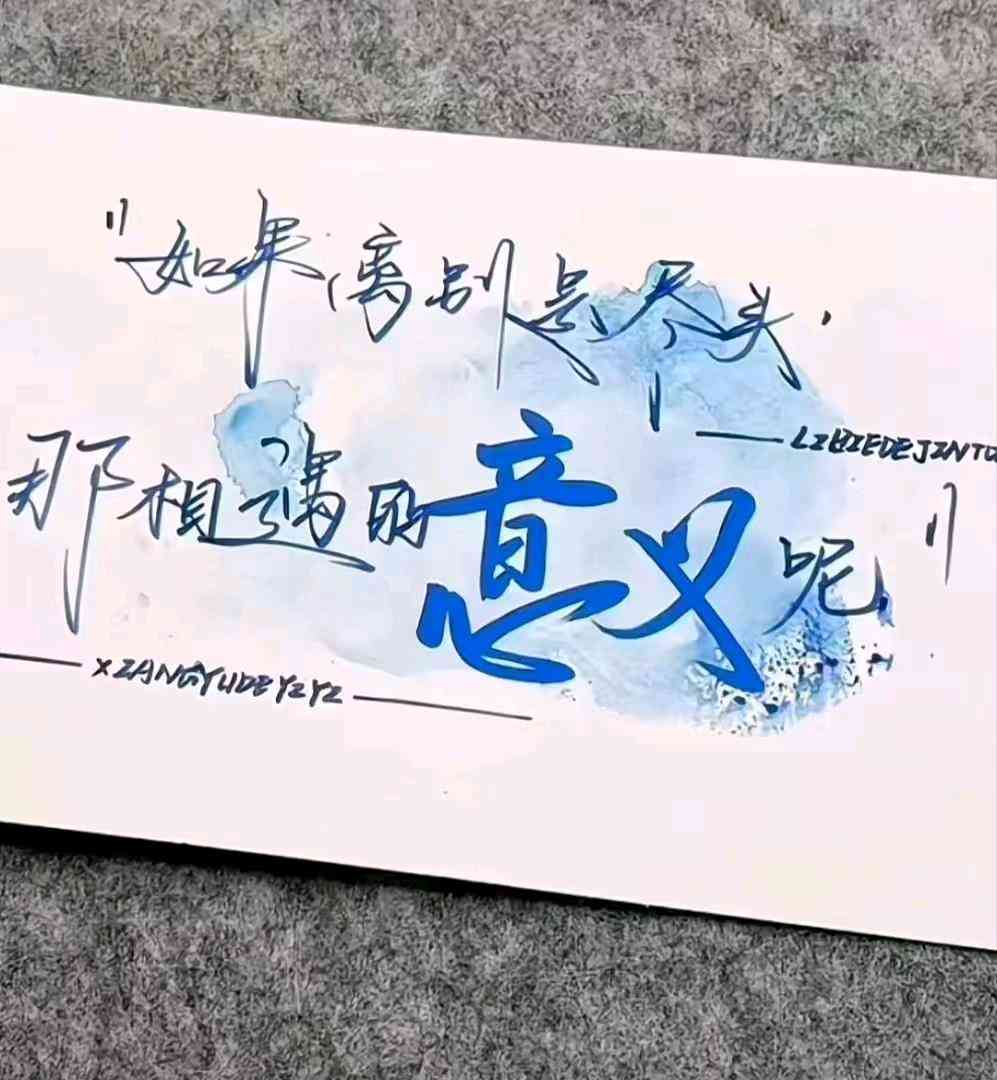 "如果离别是尽头,
LZBZEDEJZNTO
那相遇的意义呢"
XZANGYUDEYZYZ